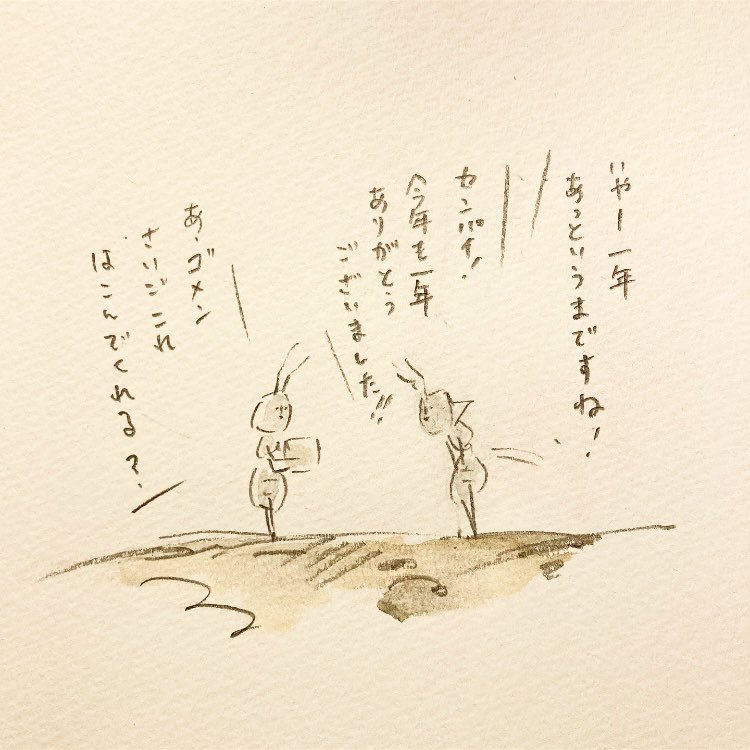 いやー一年
あっというまですね！
カンパイ！
今年も一年
ありがとう
ございました!!
あ、ゴメン
さいごこれ
はこんでくれる？